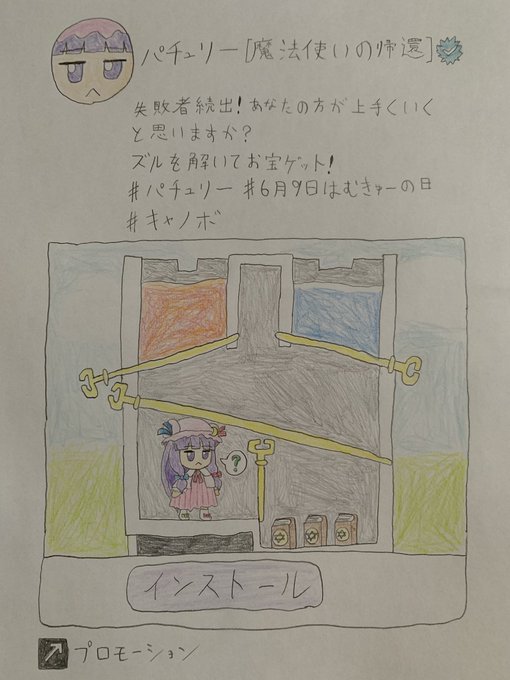 パチュリー[魔法使いの帰還]
失敗者続出!あなたの方が上手くいく
と思いますか?
ズルを解いてお宝ゲット!
#パチュリー #6月9日はむきゅーの日
#キャノボ
?
インストール
プロモーション